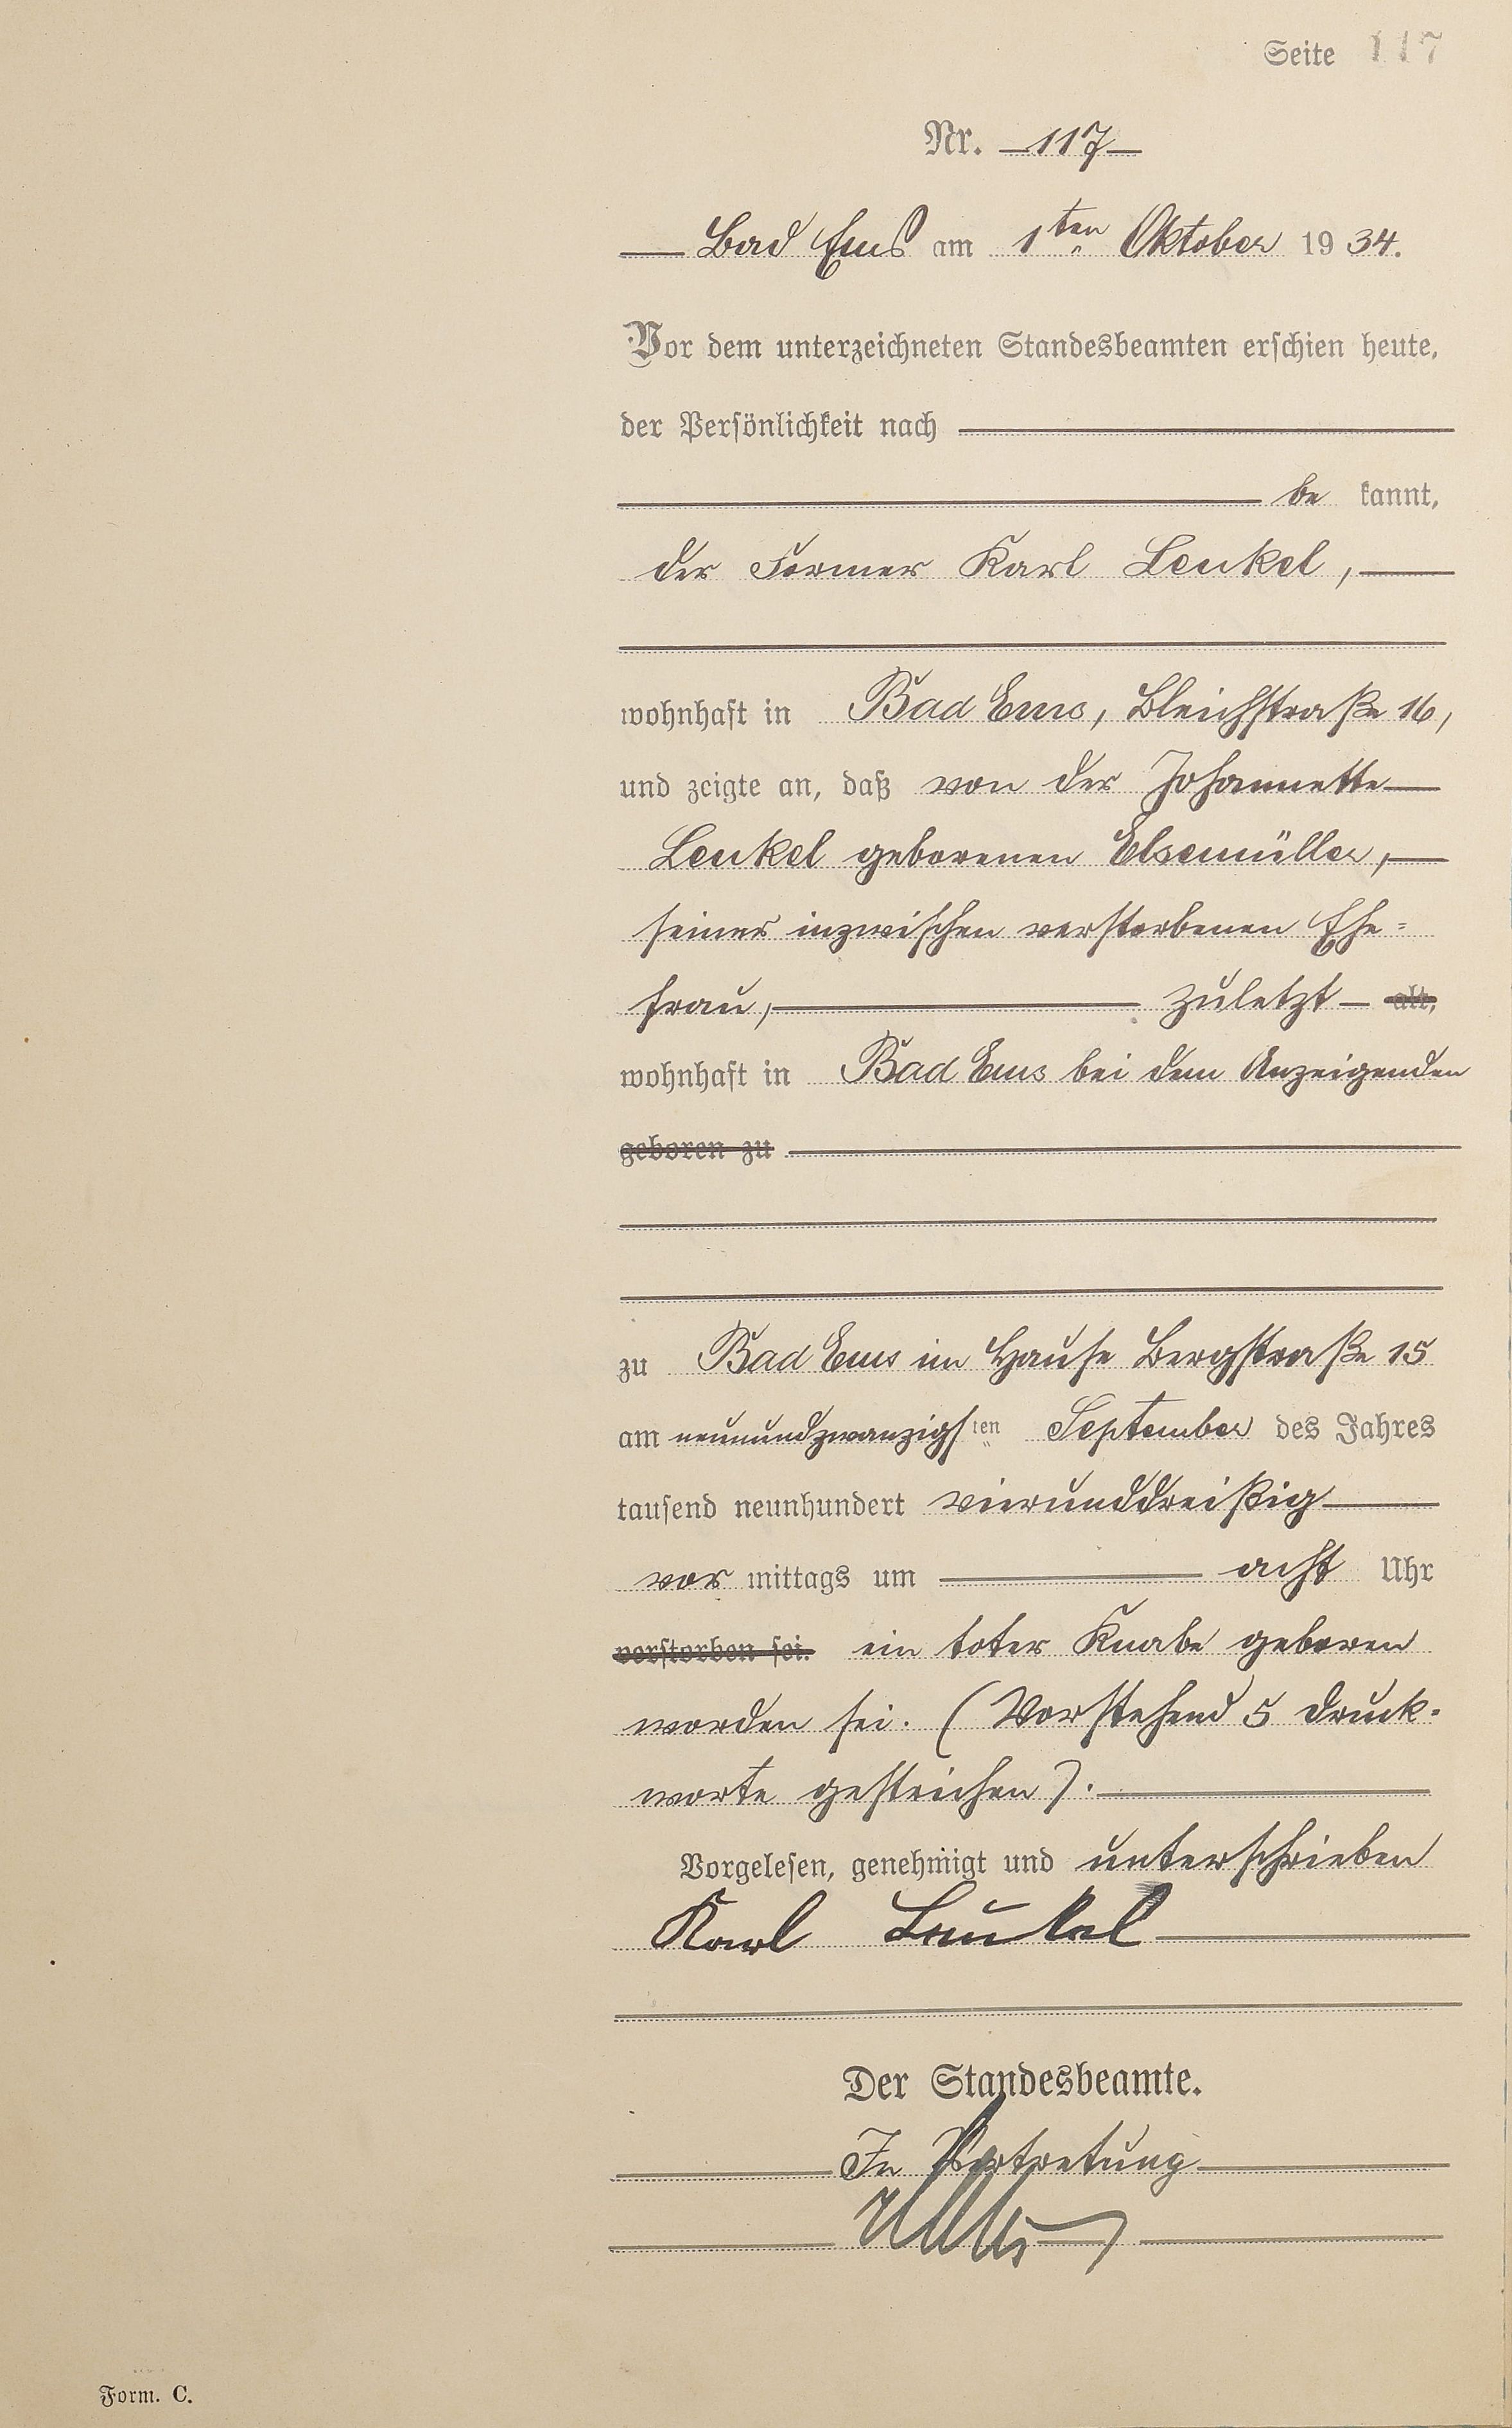 Seite 117
Nr. 117
Bad Ems am 1ten Oktober 1934.
Vor dem unterzeichneten Standesbeamten erschien heute,
der Persönlichkeit nach
be kannt,
der Former Karl Leukel,
wohnhaft in Bad Ems, Bleichstraße 16,
und zeigte an, daß von der Johannette
Leukel geborenen Elsemüller,
seiner inzwischen verstorbenen Ehe=
frau, zuletzt alt,
wohnhaft in Bad Ems bei dem Anzeigenden
geboren zu
zu Bad Ems im Hause Bergstraße 15
am neunundzwanzigsten September des Jahres
tausend neunhundert vierunddreißig
vor mittags um acht Uhr
verstorben sei. ein toter Knabe geboren
worden sei. (Vorstehend 5 Druck-
worte gestrichen).
Vorgelesen, genehmigt und unterschrieben
Karl Leukel
Der Standesbeamte.
In Vertretung
Form. C.